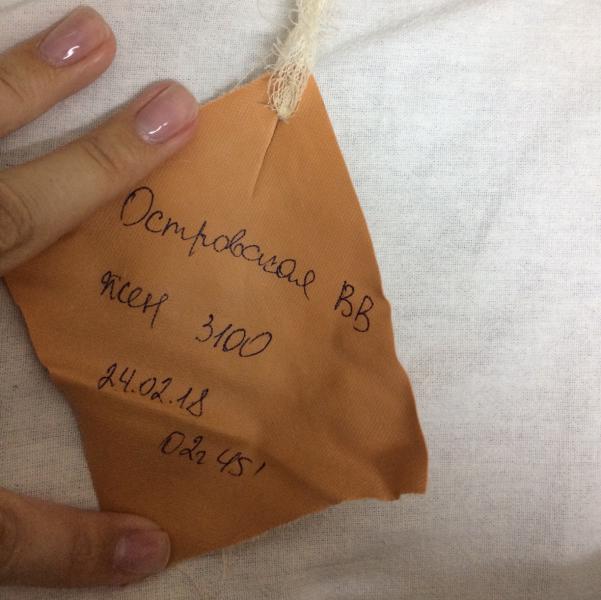 Островская ВВ
жен 3100
24.02.18
02г 45'